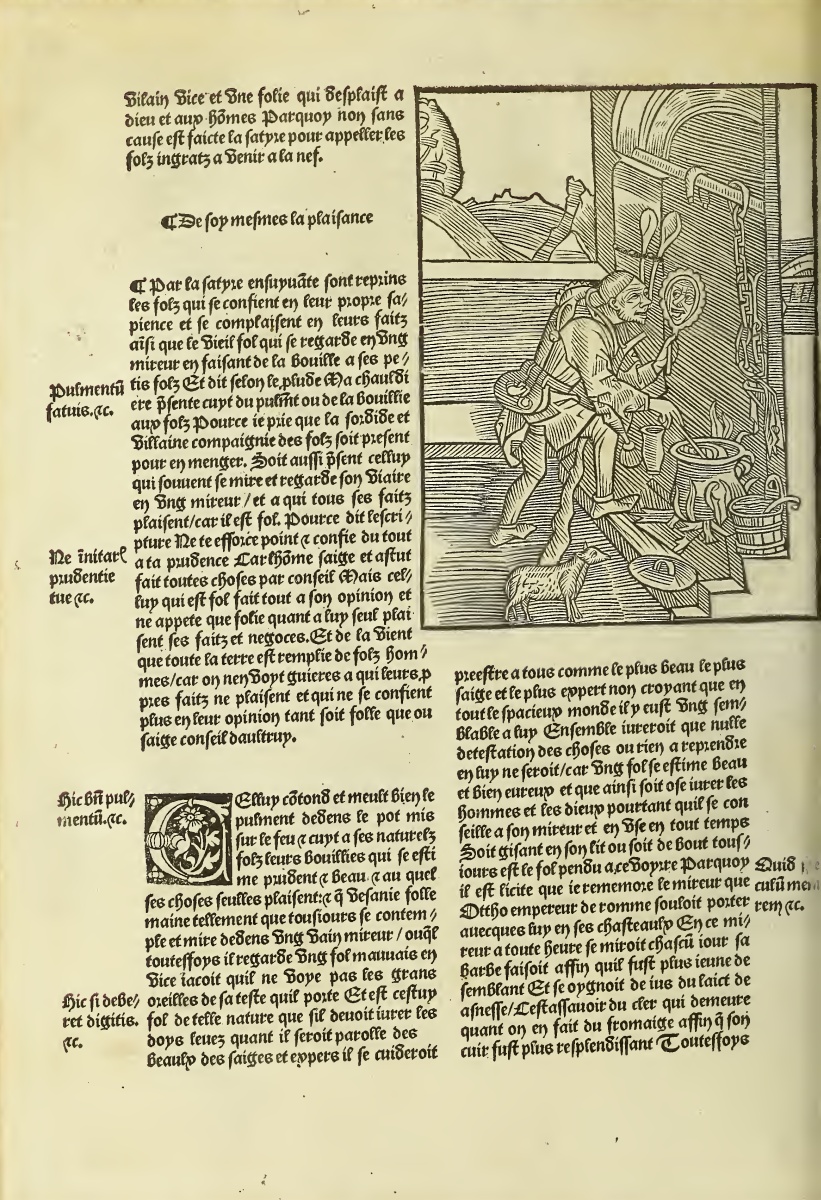 vilain vice et vne folie qui desplaist a
dieu et aux hõmes Parquoy non sans
cause est faicte la satyre pour appeller les
folz ingratz a venir a la nef.
¶ De soy mesmes la plaisance
¶ Par la satyre ensuyuãte sont reprins
les folz qui se confient en leur propre sa/
pience et se complaisent en leurs faitz
aĩsi que le vieil fol qui se regarde en vng
mireur en faisant de la bouille a ses pe/
tis folz Et dit selon le plude Ma chauldi
ere p̃sente cuyt du pulm̃t ou de la bouillie
aux folz Pource ie prie que la sordide et
villaine compaignie des folz soit present
pour en menger. Soit aussi p̃sent celluy
qui souuent se mire et regarde son viaire
en vng mireur / et a qui tous ses faitz
plaisent/car il est fol. Pource dit lescri/
pture Ne te efforce point ⁊ confie du tout
a ta prudence Car lhõme saige et astut
fait toutes choses par conseil Mais cel/
luy qui est fol fait tout a son opinion et
ne appete que folie quant a luy seul plai
sent ses faitz et negoces. Et de la vient
que toute la terre est remplie de folz hom/
mes/car on nen voyt guieres a qui leurs p
pres faitz ne plaisent et qui ne se confient
plus en leur opinion tant soit folle que ou
saige conseil daultruy.
Pulmentũ
fatuis.⁊c.
Ne ĩnitar⁊
prudentie
tue ⁊c.
Hic bñ pul/
mentũ.⁊c.
CElluy cõtond et meult bien le
pulment dedens le pot mis
sur le feu ⁊ cuyt a ses naturelz
folz leurs bouillies qui se esti
me prudent ⁊ beau. ⁊ au quel
ses choses seulles plaisent:⁊ q̃ vesanie folle
maine tellement que tousiours se contem/
ple et mire dedens vng vain mireur / ouq̃l
toutesfoys il regarde vng fol mauuais en
vice iacoit quil ne voye pas les grans
oreilles de sa teste quil porte Et est cestuy
fol de telle nature que sil deuoit iurer les
doys leuez quant il seroit parolle des
beaulx des saiges et expers il se cuideroit
Hic si debe/
ret digitis.
⁊c.
preestre a tous comme le plus beau le plus
saige et le plus expert non croyant que en
tout le spacieux monde il y eust vng sem/
blable a luy Ensemble iureroit que nulle
detestation des choses ou rien a reprendre
en luy ne seroit/car vng fol se estime beau
et bien eureux et que ainsi soit ose iurer les
hommes et les dieux pourtant quil se con
seille a son mireur et en vse en tout temps
Soit gisant en son lit ou soit de bout tous/
iours est le fol pendu a ce voyrre Parquoy
il est licite que ie rememore le mireur que
Ottho empereur de romme souloit porter
auecques luy en ses chasteaulx En ce mi/
reur a toute heure se miroit chascũ iour sa
barbe faisoit affin quil fust plus ieune de
semblant Et se oygnoit de ius du laict de
asnesse/Cestassauoir du cler qui demeure
quant on en fait du fromaige affin q̃ son
cuir fust plus resplendissant Toutesfoys
Quid
culũ me
rem ⁊c.